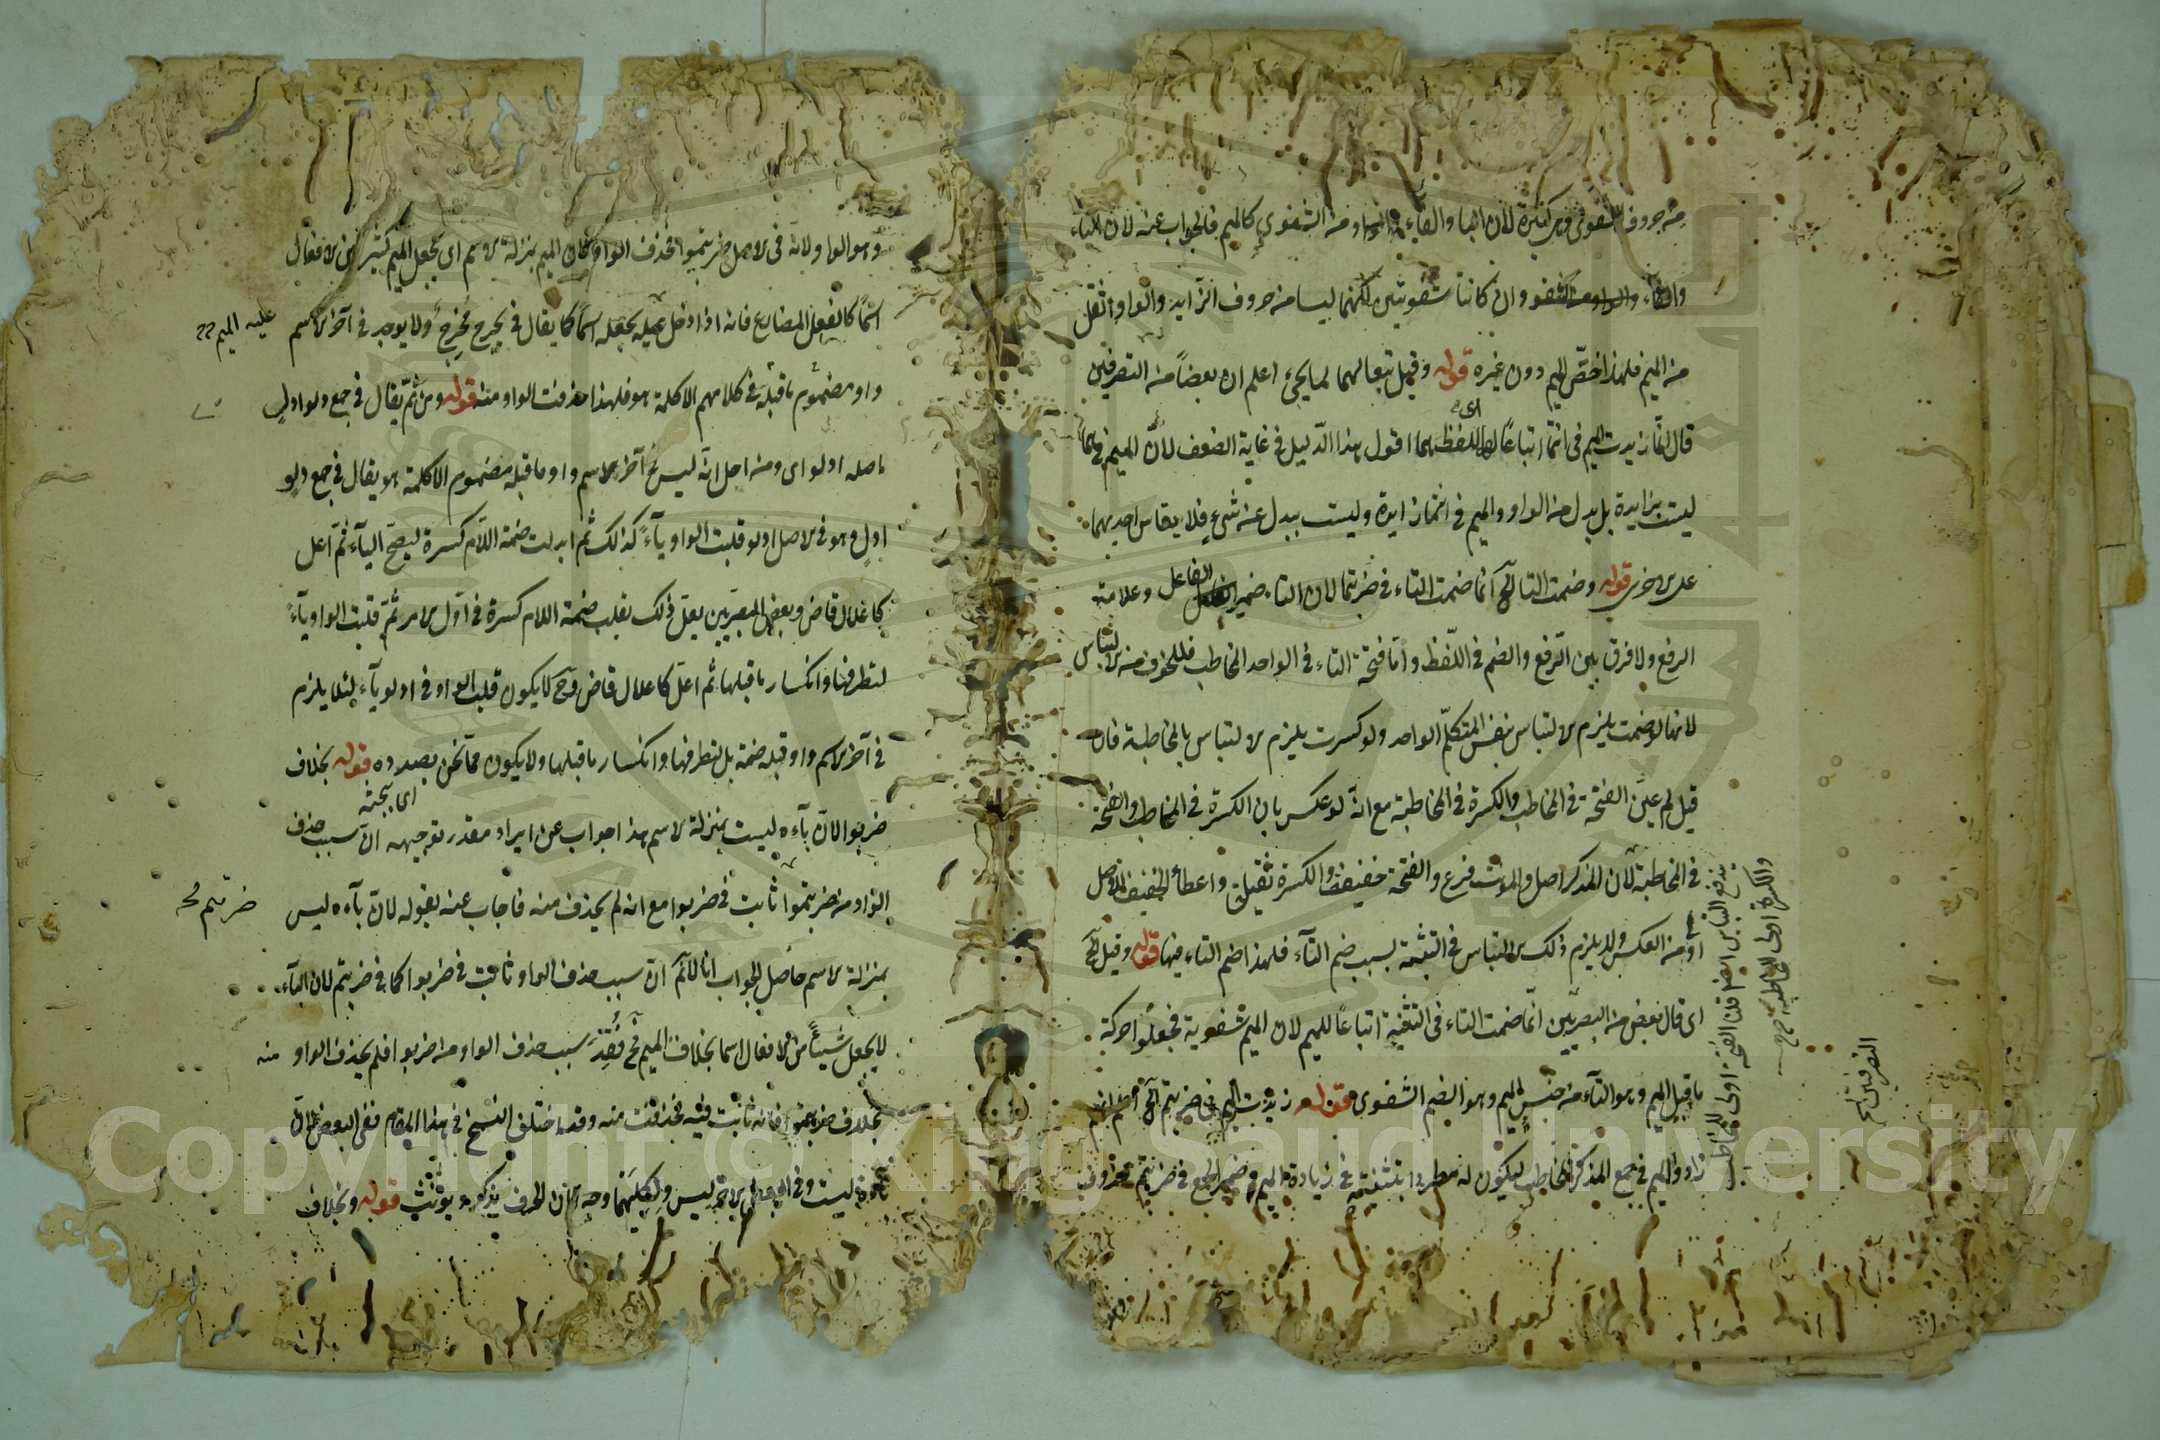 من حروف الشفوي وهي كثيرة لان الباء والفاء والواو من الشفوي كالميم فالجواب عنه لان الباء
والفاء وان كانتا شفويتين لكنهما ليسا من حروف الزايد والواو اثقل
من الميم فلهذا اختص الميم دون غيره قوله وقيل تبعا لهما لما يجيء اعلم ان بعضا من التصرفيين
قال انما زيدت الميم في انتما اتباعا للفظ هما اقول هذا الدليل في غاية الضعف لان الميم في هما
اى
ليست بزايدة بل بدل من الواو والميم في انتما زايدة وليست ببدل عن شيء فلا يقاس احديهما
على الاخرى قوله وضمت التا الخ انما ضمت التاء في ضربتما لان التاء ضمير الفاعل وعلامة
الرفع ولا فرق بين الرفع والضم في اللفظ واما فتحة التاء في الواحد المخاطب فللخوف من الالتباس
لانها لو ضمت يلزم الالتباس بنفس المتكلم الواحد ولو كسرت يلزم الالتباس بالمخاطبة فان
قيل لم عين الفتحة في المخاطب والكسرة في المخاطبة مع انه لو عكس بان الكسرة في المخاطب والفتحة
في المخاطبة لان المذكر اصل والمؤنث فرع والفتحة خفيفة والكسرة ثقيلة واعطاء الخفيف للاصل
اولى من العكس ولم يلزم ذلك الالتباس في التثنية بسبب ضم التاء فلهذا ضم التاء فيها قوله وقيل الخ
اى قال بعض من البصريين انما ضمت التاء في التثنية اتباعا للميم لان الميم شفوية فجعلوا حركة
ما قبل الميم وهو التاء من جنس الميم وهو الضم الشفوى قوله زيدت الميم في ضربتم الخ اعلم انهم
زادوا الميم في جمع المذكر المخاطب ليكون له مطردا بتثنيته في زيادة الميم وضمير الجمع في ضربتم محذوف
يدفع التباس ايضا قلنا الفتحة اولى للمخاطب
والكسرة اولى للمخاطبة
وهو الواو ولانه في الاصل ضربتموا فحذف الواو لان الميم بمنزلة الاسم اى يجعل الميم كثيرا من الافعال
اسما كالفعل المضارع فانه اذا دخل عليه يجعله اسما كما يقال في يخرج مخرج ولا يوجد في آخر الاسم
عليه الميم
واو مضموم ما قبله في كلامهم الا كلمة هو فلهذا حذفت الواو منه قوله ومن ثم يقال في جمع دلو ادلٍ
اصله ادلو اى ومن اجل انه ليس في آخر الاسم واو ما قبله مضموم الا كلمة هو يقال في جمع دلو
ادلٍ وهو في الاصل ادلو قلبت الواو ياء كذلك ثم ابدلت ضمة اللام كسرة ليصح الياء ثم اعل
كاعلال قاض وبعض البصريين يعل ذلك بقلب ضمة اللام كسرة في اول الامر ثم قلبت الواو ياء
لتطرفها وانكسار ما قبلها ثم اعل كاعلال قاض وح لا يكون قلب الواو في ادلو ياء لئلا يلزم
في آخر الاسم واو قبله ضمة بل لتطرفها وانكسار ما قبلها ولا يكون مما نحن بصدده قوله بخلاف
ضربوا لان باءه ليست بمنزلة الاسم هذا جواب عن ايراد مقدر توجيهه ان سبب حذف
الواو من ضربتموا ثابت في ضربوا مع انه لم يحذف منه فاجاب عنه بقوله لان باءه ليس
بمنزلة الاسم حاصل الجواب انا لا نم ان سبب حذف الواو ثابت في ضربوا كما في ضربتم لان الباء
لا يجعل شيئا من الافعال اسما بخلاف الميم فح فقد سبب حذف الواو من ضربوا فلم يحذف الواو منه
بخلاف ضربتموا فانه ثابت فيه فحذفت منه وقد اختلف النسخ في هذا المقام ففي البعض
ليست وفي البعض ليس ولكليهما وجه لان الحرف يذكر ويؤنث قوله وبخلاف